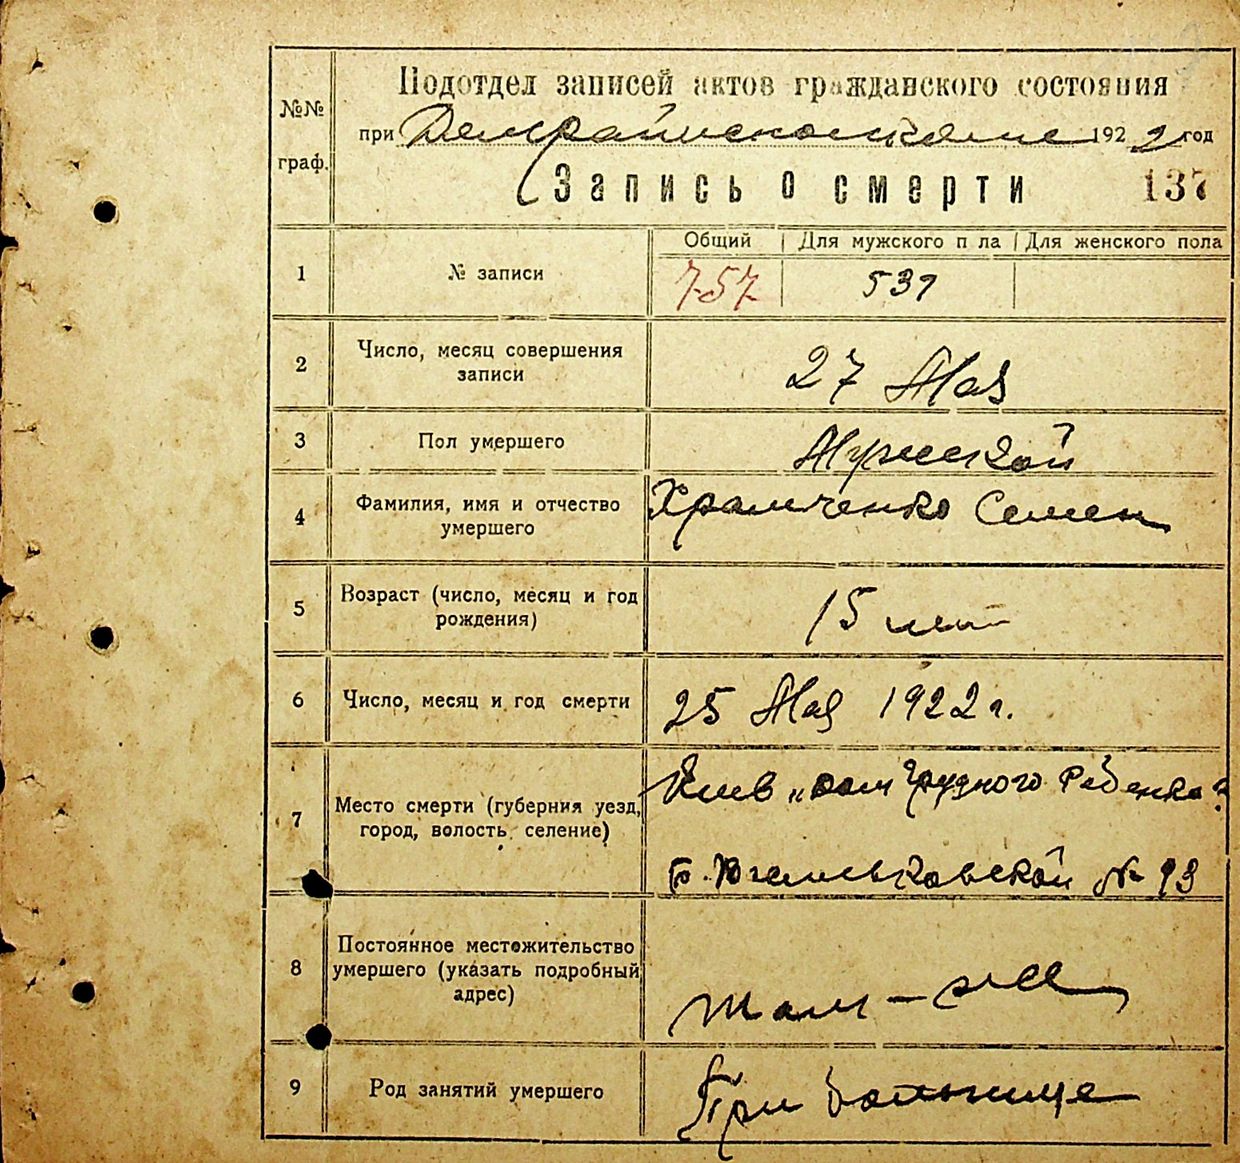 Подотдел записей актов гражданского состояния
№№ граф.
при 1922 год
Запись о смерти 137
Общий Для мужского п ла Для женского пола
1 № записи 757 531
2 Число, месяц совершения
записи
27 Мая
3 Пол умершего Мужской
4 Фамилия, имя и отчество
умершего
Храмченко Семен
5 Возраст (число, месяц и год
рождения)
15 лет
6 Число, месяц и год смерти 25 Мая 1922 г.
7 Место смерти (губерния уезд,
город, волость, селение)
Киев „Дом Грудного Ребенка"
Б. Васильковской № 93
8 Постоянное местожительство
умершего (указать подробный
адрес)
там-же
9 Род занятий умершего При больнице